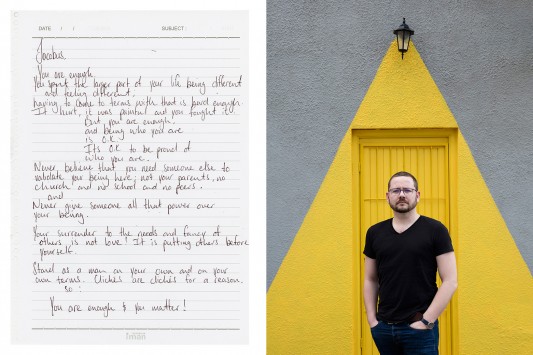 DATE / / SUBJECT:
Jacobus,
You are enough.
You spent the larger part of your life being different
and feeling different;
having to come to terms with that is hard enough.
It hurt, it was painful and you fought it.
But you are enough.
and being who you are
is O.K
It's O.K to be proud of
who you are.
Never, believe that you need someone else to
validate your being here; not your parents, no
church and no school and no peers.
and
Never give someone all that power over
your being.
Your surrender to the needs and fancy of
others is not love! It is putting others before
yourself.
Stand as a man on your own and on your
own terms. Clichés are clichés for a reason.
so:
You are enough & you matter!